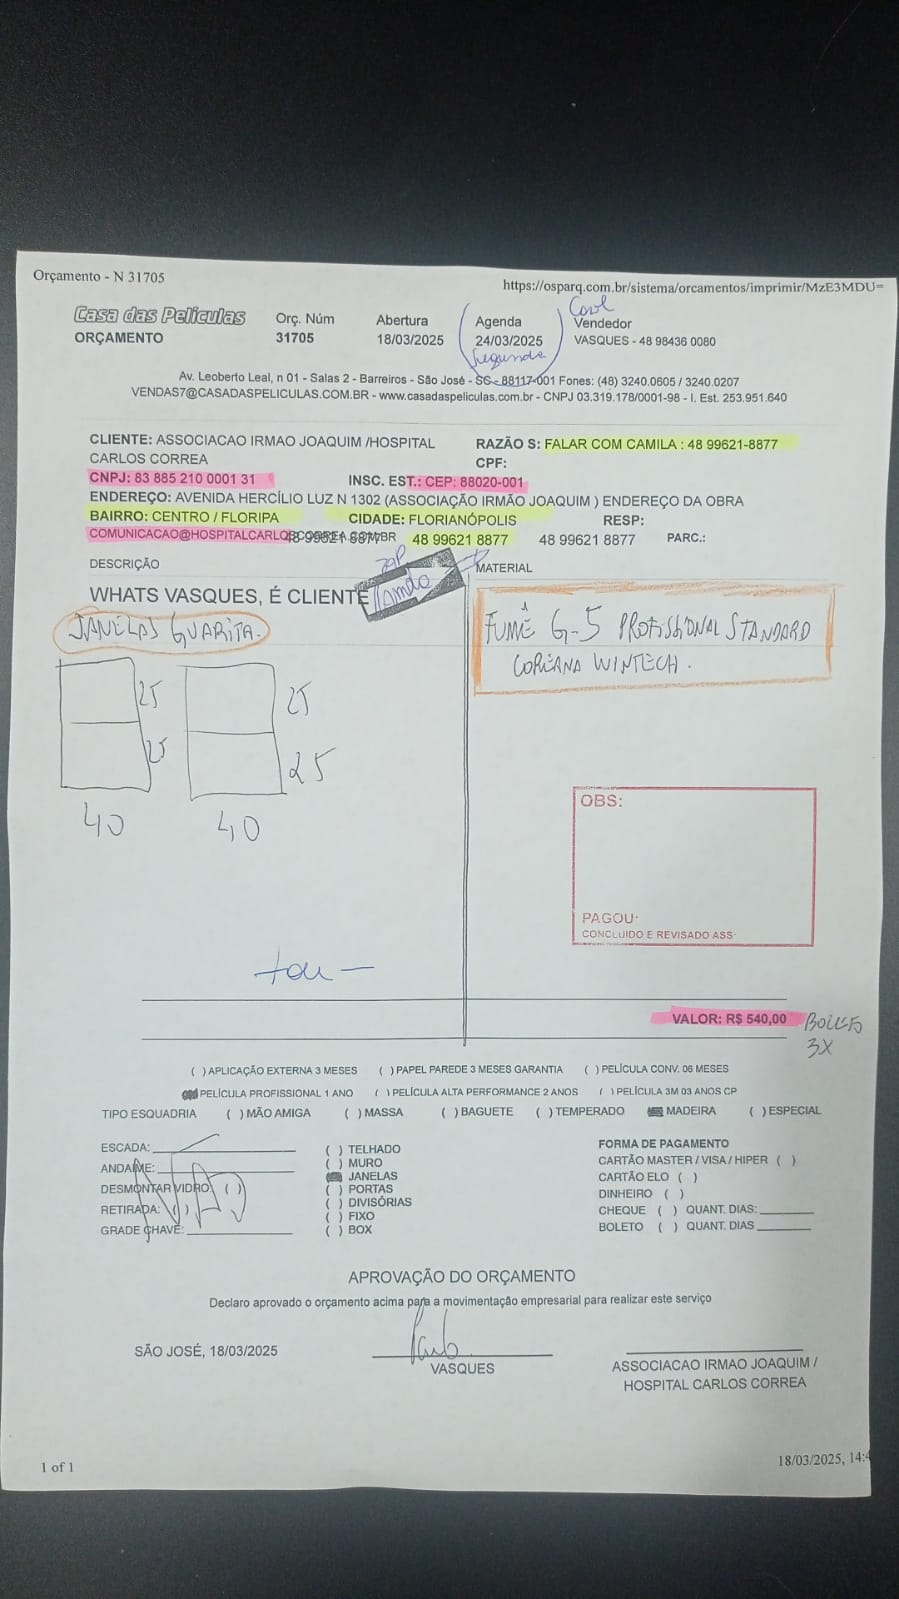 Orçamento - N 31705
https://osparq.com.br/sistema/orcamentos/imprimir/MzE3MDU=
Casa das Películas
ORÇAMENTO
Orç. Núm
31705
Abertura
18/03/2025
Agenda
24/03/2025
Segunda
Vendedor
VASQUES - 48 98436 0080
Av. Leoberto Leal, n 01 - Salas 2 - Barreiros - São José - SC - 88117-001 Fones: (48) 3240.0605 / 3240.0207
VENDAS7@CASADASPELICULAS.COM.BR - www.casadaspeliculas.com.br - CNPJ 03.319.178/0001-98 - I. Est. 253.951.640
CLIENTE: ASSOCIACAO IRMAO JOAQUIM /HOSPITAL
CARLOS CORREA
RAZÃO S: FALAR COM CAMILA : 48 99621-8877
CPF:
CNPJ: 83 885 210 0001 31
INSC. EST.: CEP: 88020-001
ENDEREÇO: AVENIDA HERCÍLIO LUZ N 1302 (ASSOCIAÇÃO IRMÃO JOAQUIM ) ENDEREÇO DA OBRA
BAIRRO: CENTRO / FLORIPA
CIDADE: FLORIANÓPOLIS
RESP:
COMUNICACAO@HOSPITALCARLOSCORREA.COM.BR
48 99621 8877
48 99621 8877
48 99621 8877
PARC.:
DESCRIÇÃO
MATERIAL
WHATS VASQUES, É CLIENTE
JANELAS GUARITA.
FUMÊ G-5 PROFISSIONAL STANDARD
COREANA WINTECH.
25
25
25
25
40
40
OBS:
PAGOU:
CONCLUIDO E REVISADO ASS:
VALOR: R$ 540,00
BOLETO
3X
( ) APLICAÇÃO EXTERNA 3 MESES ( ) PAPEL PAREDE 3 MESES GARANTIA ( ) PELÍCULA CONV. 06 MESES
PELÍCULA PROFISSIONAL 1 ANO ( ) PELÍCULA ALTA PERFORMANCE 2 ANOS ( ) PELÍCULA 3M 03 ANOS CP
TIPO ESQUADRIA ( ) MÃO AMIGA ( ) MASSA ( ) BAGUETE ( ) TEMPERADO MADEIRA ( ) ESPECIAL
ESCADA:
ANDAIME:
DESMONTAR VIDRO: ( )
RETIRADA: ( )
GRADE CHAVE:
( ) TELHADO
( ) MURO
JANELAS
( ) PORTAS
( ) DIVISÓRIAS
( ) FIXO
( ) BOX
FORMA DE PAGAMENTO
CARTÃO MASTER / VISA / HIPER ( )
CARTÃO ELO ( )
DINHEIRO ( )
CHEQUE ( ) QUANT. DIAS:
BOLETO ( ) QUANT. DIAS
APROVAÇÃO DO ORÇAMENTO
Declaro aprovado o orçamento acima para a movimentação empresarial para realizar este serviço
SÃO JOSÉ, 18/03/2025
VASQUES
ASSOCIACAO IRMAO JOAQUIM /
HOSPITAL CARLOS CORREA
1 of 1
18/03/2025, 14:4